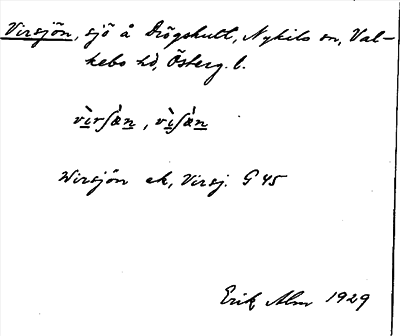 Virsjön, sjö å Drögshult, Nykils sn, Val-
kebo hd, Österg. l.
vìrʃæ̀n, vìʃæ̀n
Wirsjön ek, Virsj. G 45
Erik Alm 1929